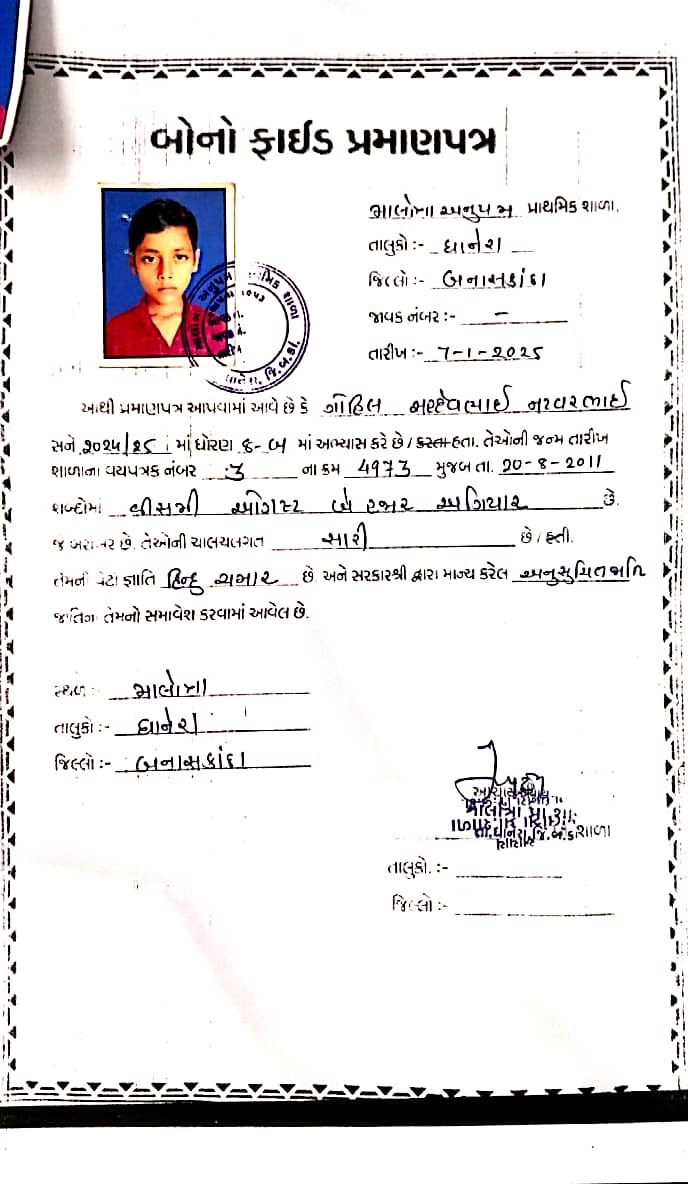 બોનો ફાઈડ પ્રમાણપત્ર
માલોત્રા અનુપમ પ્રાથમિક શાળા.
તાલુકો :- ધાનેરા
જિલ્લો :- બનાસકાંઠા
જાવક નંબર :- –
તારીખ :- 7-1-2025
આથી પ્રમાણપત્ર આપવામાં આવે છે કે ગોહિલ નરવરભાઈ
સને ૨૦૨૪/૨૫ માં ધોરણ ૬-બ માં અભ્યાસ કરે છે / કરતા હતા. તેઓની જન્મ તારીખ
શાળાના વયપત્રક નંબર :૩ ના ક્રમ 4973 મુજબ તા. 20-8-2011
શબ્દોમાં વીસમી ઓગષ્ટ બે હજાર અગિયાર છે.
જ બરાબર છે. તેઓની ચાલચલગત સારી છે / હતી.
તેમની પેટા જ્ઞાતિ હિન્દુ ચમાર છે. અને સરકારશ્રી દ્વારા માન્ય કરેલ અનુસુચિતજાતિ
જાતિમાં તેમનો સમાવેશ કરવામાં આવેલ છે.
સ્થળ :- માલોત્રા
તાલુકો :- ધાનેરા
જિલ્લો :- બનાસકાંઠા
આચાર્ય
માલોત્રા
તા.ધાનેરા, જિ.બ.કાં. શાળા
તાલુકો. :-
જિલ્લો :-